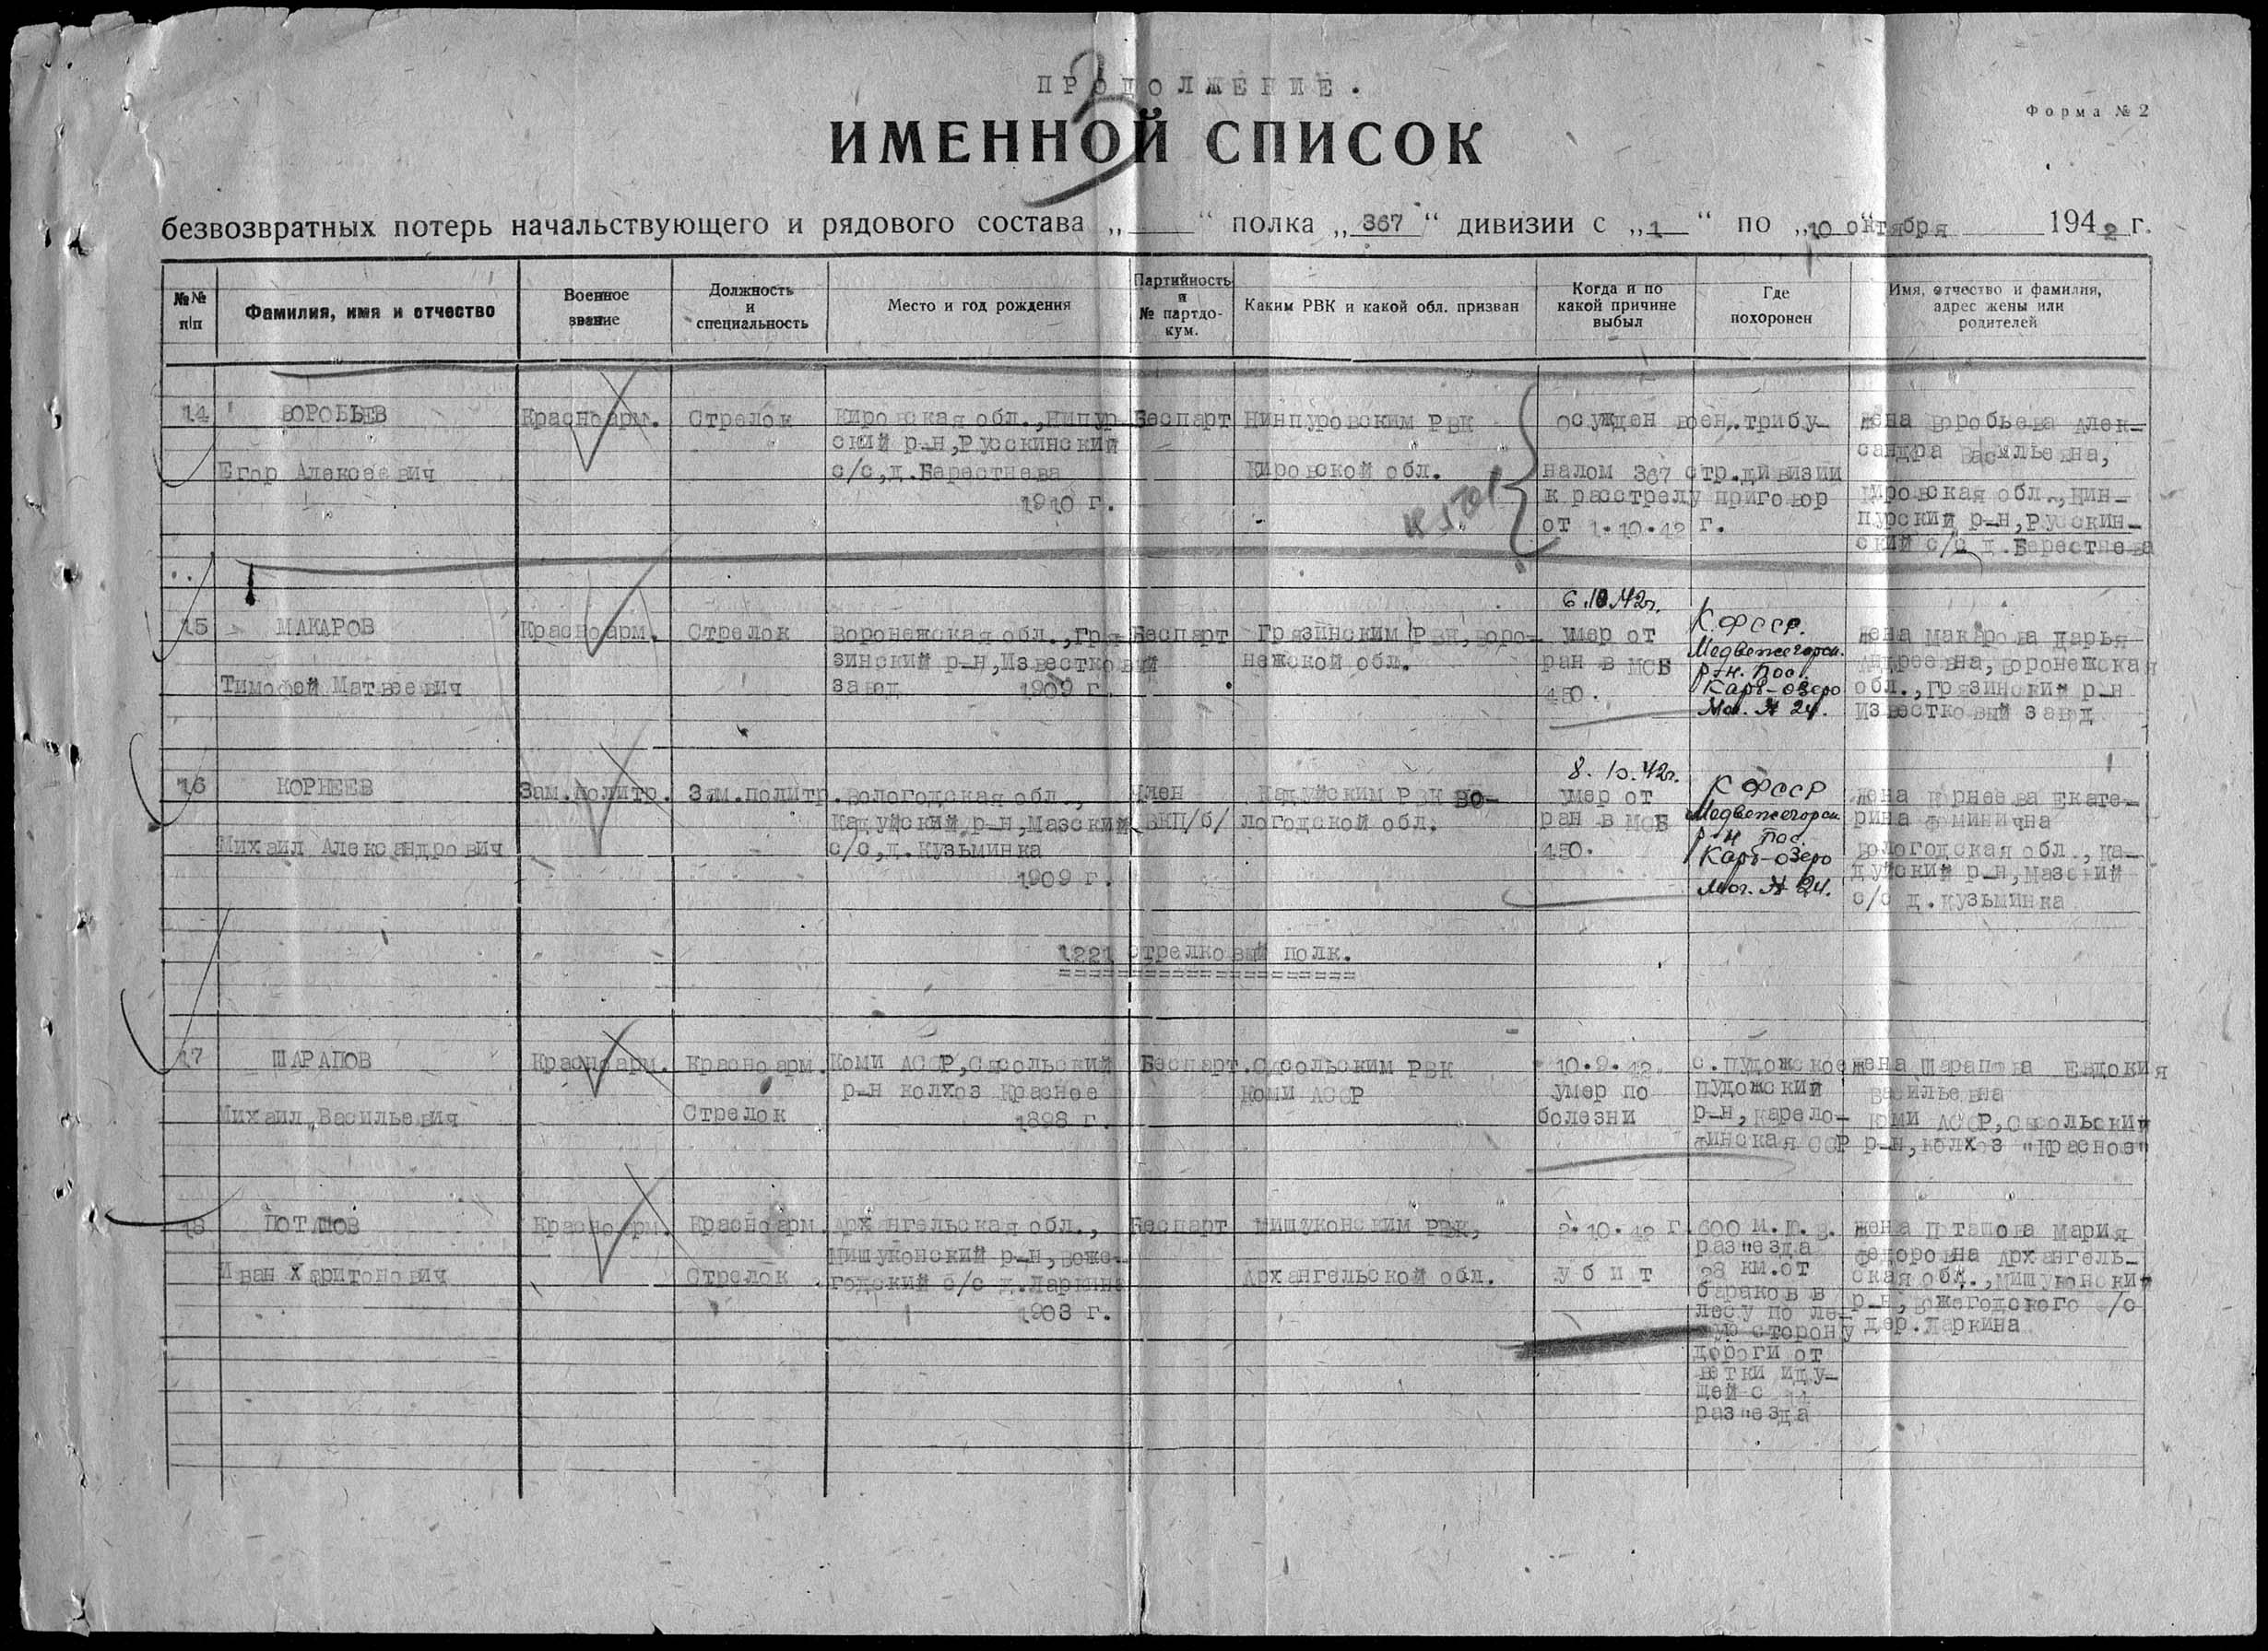 ПРОДОЛЖЕНИЕ.
Форма № 2
ИМЕННОЙ СПИСОК
безвозвратных потерь начальствующего и рядового состава „ “ полка „367“ дивизии с „1“ по „10 октября“ 1942 г.
№№ п/п
Фамилия, имя и отчество
Военное звание
Должность и специальность
Место и год рождения
Партийность и № партдокум.
Каким РВК и какой обл. призван
Когда и по какой причине выбыл
Где похоронен
Имя, отчество и фамилия, адрес жены или родителей
14
ВОРОБЬЕВ
Егор Алексеевич
Красноарм.
Стрелок
Кировская обл., Нинпур
ский р-н, Русскинский
с/с, д. Берестнева
1910 г.
Беспарт
Нинпуровским РВК
Кировской обл.
осужден воен. трибу-
налом 367 стр. дивизии
к расстрелу приговор
от 1.10.42 г.
жена Воробьева Алек-
сандра Васильевна,
Кировская обл., Нин-
пурский р-н, Русскин-
ский с/с д. Берестнева
15
МАКАРОВ
Тимофей Матвеевич
Красноарм.
Стрелок
Воронежская обл., Гря-
зинский р-н, Известковый
завод 1909 г.
Беспарт
Грязинским РВК, Воро-
нежской обл.
6.10.42г.
умер от
ран в МСБ
450.
КФССР.
Медвежегорск.
р-н. Пос.
Карб-озеро
Мог. № 24.
жена Макарова Дарья
Андреевна, Воронежская
обл., Грязинский р-н
Известковый завод
16
КОРНЕЕВ
Михаил Александрович
Зам.политр.
Зам.политр.
Вологодская обл.,
Кадуйский р-н, Мазский
с/с, д. Кузьминка
1909 г.
Член
ВКП/б/
Кадуйским РВК Во-
логодской обл.
8.10.42г.
умер от
ран в МСБ
450.
КФССР
Медвежегорск
р-н Пос.
Карб-озеро
Мог. № 24.
жена Корнеева Екате-
рина Фоминична
Вологодская обл., Ка-
дуйский р-н, Мазский
с/с д. Кузьминка
1221 стрелковый полк.
17
ШАРАПОВ
Михаил Васильевич
Красноарм.
Красноарм.
Стрелок
Коми АССР, Сысольский
р-н колхоз Красное
1898 г.
Беспарт.
Сысольским РВК
Коми АССР
10.9.42.
умер по
болезни
с. Пудожское
Пудожский
р-н, Карело-
финская ССР
жена Шарапова Евдокия
Васильевна
Коми АССР, Сысольский
р-н, колхоз "Красное"
18
ПОТАПОВ
Иван Харитонович
Красноарм.
Красноарм.
Стрелок
Архангельская обл.,
Мишуконский р-н, Воже-
годский с/с д. Ларкина
1903 г.
Беспарт
Мишуконским РВК,
Архангельской обл.
2.10.42 г.
убит
600 м. Ю.В.
раз"езда
28 км. от
бараков в
лесу по ле-
вую сторону
дороги от
ветки иду-
щей с 11
раз"езда
жена Потапова Мария
Федоровна Архангель-
ская обл., Мишуконский
р-н, Вожегодского с/с
дер. Ларкина